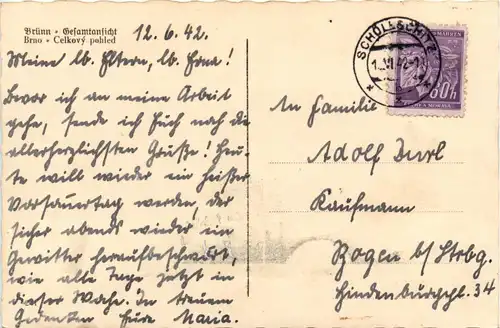 Brünn - Gesamtansicht
Brno - Celkový pohled
12.6.42.
Meine lb. Eltern, lb. Erna!
Bevor ich an meine Arbeit
gehe, sende ich Euch noch die
allerherzlichsten Grüße! Heu-
te will wieder ein heißer
Vorsauertag werden, der
sicher abends wieder ein
Gewitter heraufbeschwört,
wie alle Tage jetzt in
dieser Woche. In treuem
Gedenken Eure Maria.
SCHÖLLSCHITZ
60h
An Familie
Adolf
Kaufmann
Bogen b/ Strbg.
Hindenburgstr. 34